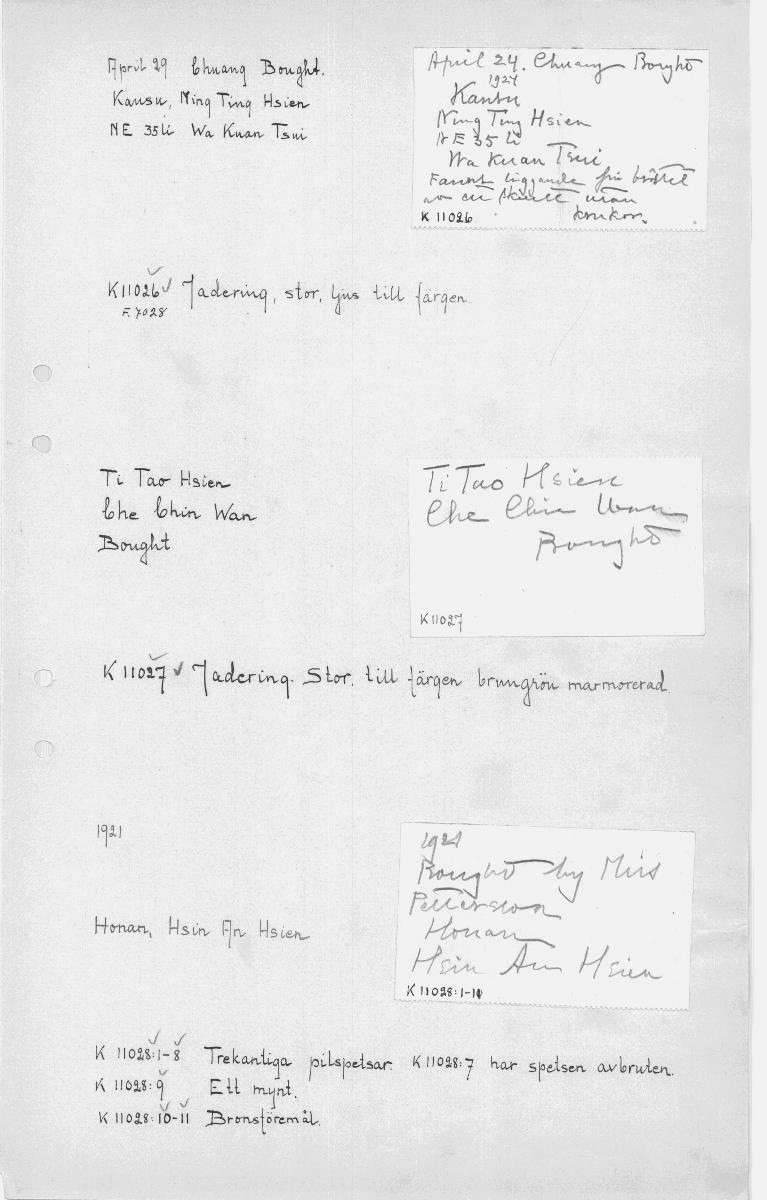 April 29 Chuang Bought.
Kansu, Ning Ting Hsien
NE 35 li Wa Kuan Tsui
April 24. Chuang Bought
1924
Kansu
Ning Ting Hsien
NE 35 li
Wa Kuan Tsui
Fanns liggande på bröstet
av ett skelett utan
krukor.
K 11026
K11026 Jadering, stor, ljus till färgen.
F. 7028
Ti Tao Hsien
Che Chin Wan
Bought
Ti Tao Hsien
Che Chin Wan
Bought
K11027
K 11027 Jadering. Stor, till färgen brungrön marmorerad.
1921
Honan, Hsin An Hsien
1921
Bought by Miss
Pettersson
Honan
Hsin An Hsien
K 11028:1-11
K 11028:1-8 Trekantiga pilspetsar. K 11028:7 har spetsen avbruten.
K 11028:9 Ett mynt.
K 11028:10-11 Bronsföremål.